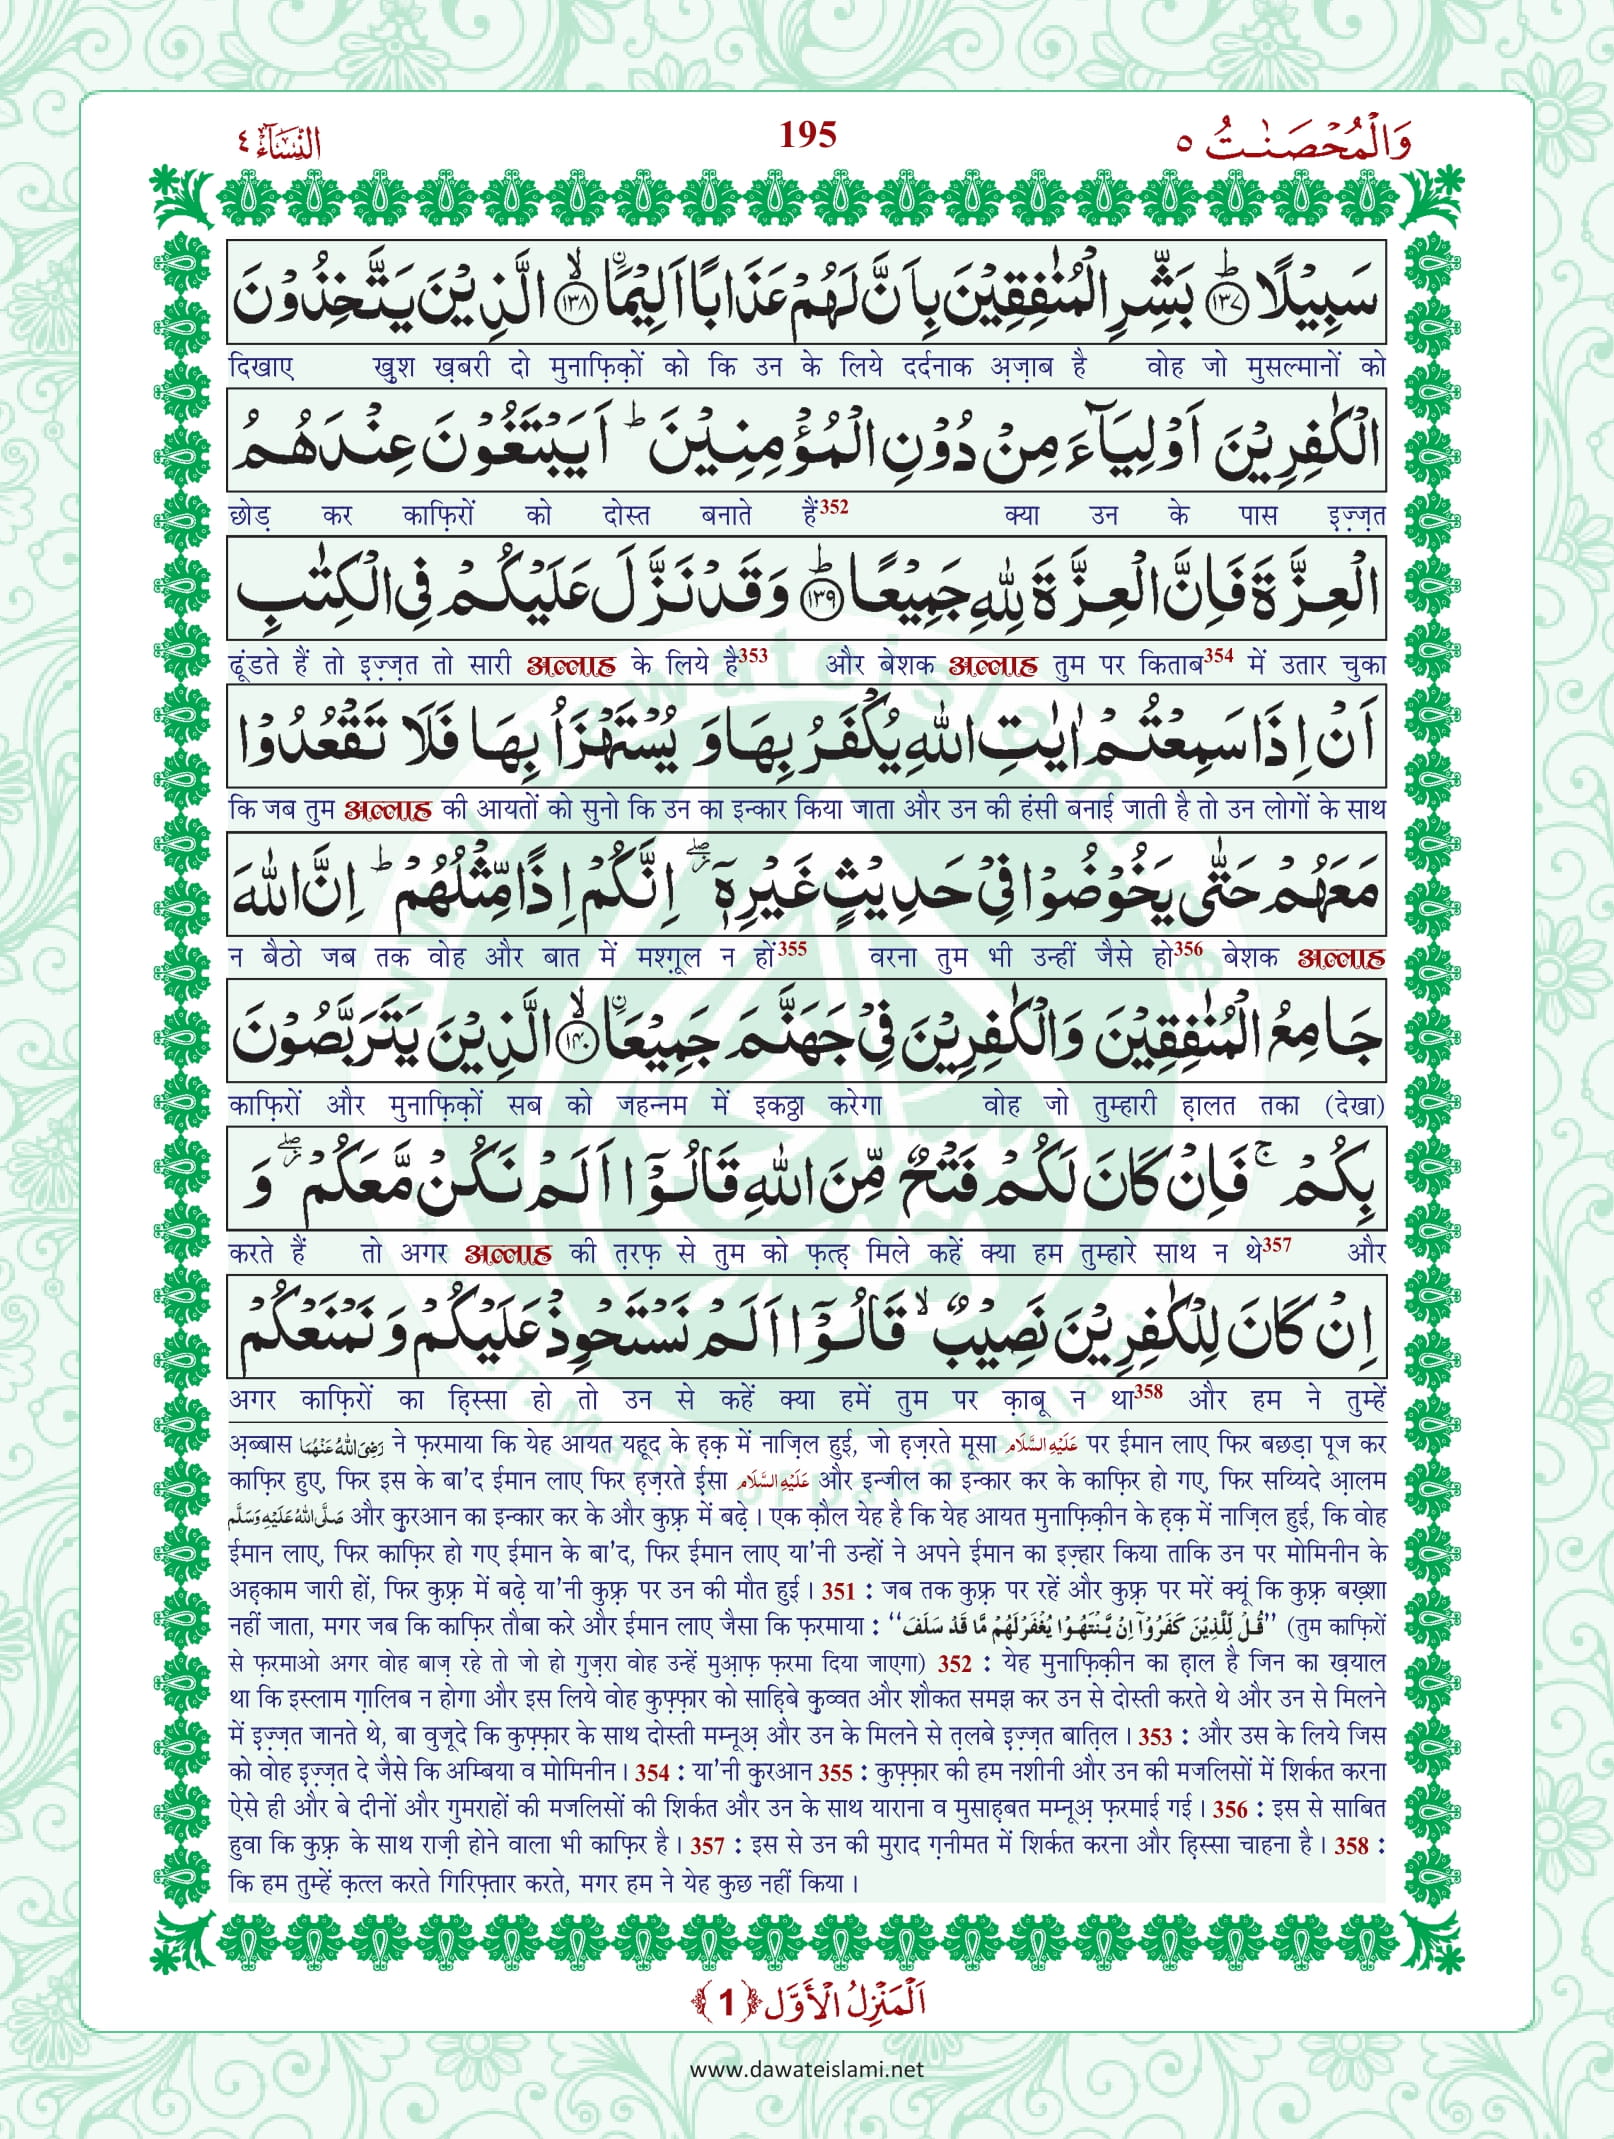 النِّسَآء ٤
195
وَالْمُحْصَنٰتُ ٥
سَبِيْلًا ؕ﴿۱۳۷﴾ بَشِّرِ الْمُنٰفِقِيْنَ بِاَنَّ لَهُمْ عَذَابًا اَلِيْمَا ۙ﴿۱۳۸﴾ الَّذِيْنَ يَتَّخِذُوْنَ
दिखाए खुश ख़बरी दो मुनाफ़िक़ों को कि उन के लिये दर्दनाक अ़ज़ाब है वोह जो मुसल्मानों को
الْكٰفِرِيْنَ اَوْلِيَآءَ مِنْ دُوْنِ الْمُؤْمِنِيْنَ ؕ اَيَبْتَغُوْنَ عِنْدَهُمُ
छोड़ कर काफ़िरों को दोस्त बनाते हैं352 क्या उन के पास इ़ज़्ज़त
الْعِزَّةَ فَاِنَّ الْعِزَّةَ لِلّٰهِ جَمِيْعًا ؕ﴿۱۳۹﴾ وَقَدْ نَزَّلَ عَلَيْكُمْ فِی الْكِتٰبِ
ढूंडते हैं तो इ़ज़्ज़त तो सारी अल्लाह के लिये है353 और बेशक अल्लाह तुम पर किताब354 में उतार चुका
اَنْ اِذَا سَمِعْتُمْ اٰيٰتِ اللّٰهِ يُكْفَرُ بِهَا وَ يُسْتَهْزَاُ بِهَا فَلَا تَقْعُدُوْا
कि जब तुम अल्लाह की आयतों को सुनो कि उन का इन्कार किया जाता और उन की हंसी बनाई जाती है तो उन लोगों के साथ
مَعَهُمْ حَتّٰی يَخُوْضُوْا فِیْ حَدِيْثٍ غَيْرِهٖۤ ۖ اِنَّكُمْ اِذًا مِّثْلُهُمْ ؕ اِنَّ اللّٰهَ
न बैठो जब तक वोह और बात में मश्ग़ूल न हों355 वरना तुम भी उन्हीं जैसे हो356 बेशक अल्लाह
جَامِعُ الْمُنٰفِقِيْنَ وَالْكٰفِرِيْنَ فِیْ جَهَنَّمَ جَمِيْعَا ۙ﴿۱۴۰﴾ الَّذِيْنَ يَتَرَبَّصُوْنَ
काफ़िरों और मुनाफ़िक़ों सब को जहन्नम में इकठ्ठा करेगा वोह जो तुम्हारी ह़ालत तका (देखा)
بِكُمْ ۚ فَاِنْ كَانَ لَكُمْ فَتْحٌ مِّنَ اللّٰهِ قَالُوْۤا اَلَمْ نَكُنْ مَّعَكُمْ ۖ وَ
करते हैं तो अगर अल्लाह की त़रफ़ से तुम को फ़त्ह़ मिले कहें क्या हम तुम्हारे साथ न थे357 और
اِنْ كَانَ لِلْكٰفِرِيْنَ نَصِيْبٌ ۙ قَالُوْۤا اَلَمْ نَسْتَحْوِذْ عَلَيْكُمْ وَ نَمْنَعْكُمْ
अगर काफ़िरों का ह़िस्सा हो तो उन से कहें क्या हमें तुम पर क़ाबू न था358 और हम ने तुम्हें
अ़ब्बास رَضِیَ اللّٰهُ عَنْهُمَا ने फ़रमाया कि येह आयत यहूद के ह़क़ में नाज़िल हुई, जो ह़ज़रते मूसा عَلَيْهِ السَّلَام पर ईमान लाए फिर बछड़ा पूज कर
काफ़िर हुए, फिर इस के बा'द ईमान लाए फिर ह़ज़रते ईसा عَلَيْهِ السَّلَام और इन्जील का इन्कार कर के काफ़िर हो गए, फिर सय्यिदे आ़लम
صَلَّی اللّٰهُ عَلَيْهِ وَسَلَّم और क़ुरआन का इन्कार कर के और कुफ़्र में बढ़े। एक क़ौल येह है कि येह आयत मुनाफ़िक़ीन के ह़क़ में नाज़िल हुई, कि वोह
ईमान लाए, फिर काफ़िर हो गए ईमान के बा'द, फिर ईमान लाए या'नी उन्हों ने अपने ईमान का इज़्हार किया ताकि उन पर मोमिनीन के
अह़काम जारी हों, फिर कुफ़्र में बढ़े या'नी कुफ़्र पर उन की मौत हुई। 351 : जब तक कुफ़्र पर रहें और कुफ़्र पर मरें क्यूं कि कुफ़्र बख़्शा
नहीं जाता, मगर जब कि काफ़िर तौबा करे और ईमान लाए जैसा कि फ़रमाया : ‘‘قُلْ لِّلَّذِيْنَ كَفَرُوْۤا اِنْ يَّنْتَهُوْا يُغْفَرْ لَهُمْ مَّا قَدْ سَلَفَ’’ (तुम काफ़िरों
से फ़रमाओ अगर वोह बाज़ रहे तो जो हो गुज़रा वोह उन्हें मुआ़फ़ फ़रमा दिया जाएगा) 352 : येह मुनाफ़िक़ीन का ह़ाल है जिन का ख़याल
था कि इस्लाम ग़ालिब न होगा और इस लिये वोह कुफ़्फ़ार को साह़िबे क़ुव्वत और शौकत समझ कर उन से दोस्ती करते थे और उन से मिलने
में इ़ज़्ज़त जानते थे, बा वुजूदे कि कुफ़्फ़ार के साथ दोस्ती मम्नूअ़ और उन के मिलने से त़लबे इ़ज़्ज़त बात़िल। 353 : और उस के लिये जिस
को वोह इ़ज़्ज़त दे जैसे कि अम्बिया व मोमिनीन। 354 : या'नी क़ुरआन 355 : कुफ़्फ़ार की हम नशीनी और उन की मजलिसों में शिर्कत करना
ऐसे ही और बे दीनों और गुमराहों की मजलिसों की शिर्कत और उन के साथ याराना व मुसाह़बत मम्नूअ़ फ़रमाई गई। 356 : इस से साबित
हुवा कि कुफ़्र के साथ राज़ी होने वाला भी काफ़िर है। 357 : इस से उन की मुराद ग़नीमत में शिर्कत करना और ह़िस्सा चाहना है। 358 :
कि हम तुम्हें क़त्ल करते गिरिफ़्तार करते, मगर हम ने येह कुछ नहीं किया।
اَلْمَنْزِلُ الْاَوَّل ﴿1﴾
www.dawateislami.net